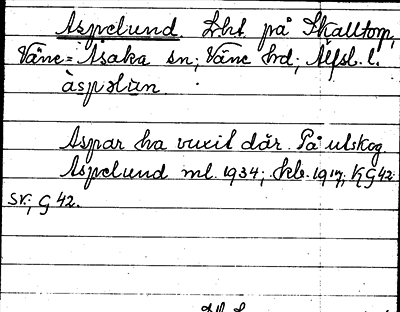 Aspelund. Lht på Skalltorp,
Väne-Åsaka sn; Väne hd; Älfsb. l.
àspəlùn
Aspar ha vuxit där. På utskog
Aspelund ml. 1934; kb. 1917; KG 42
sv; G 42.